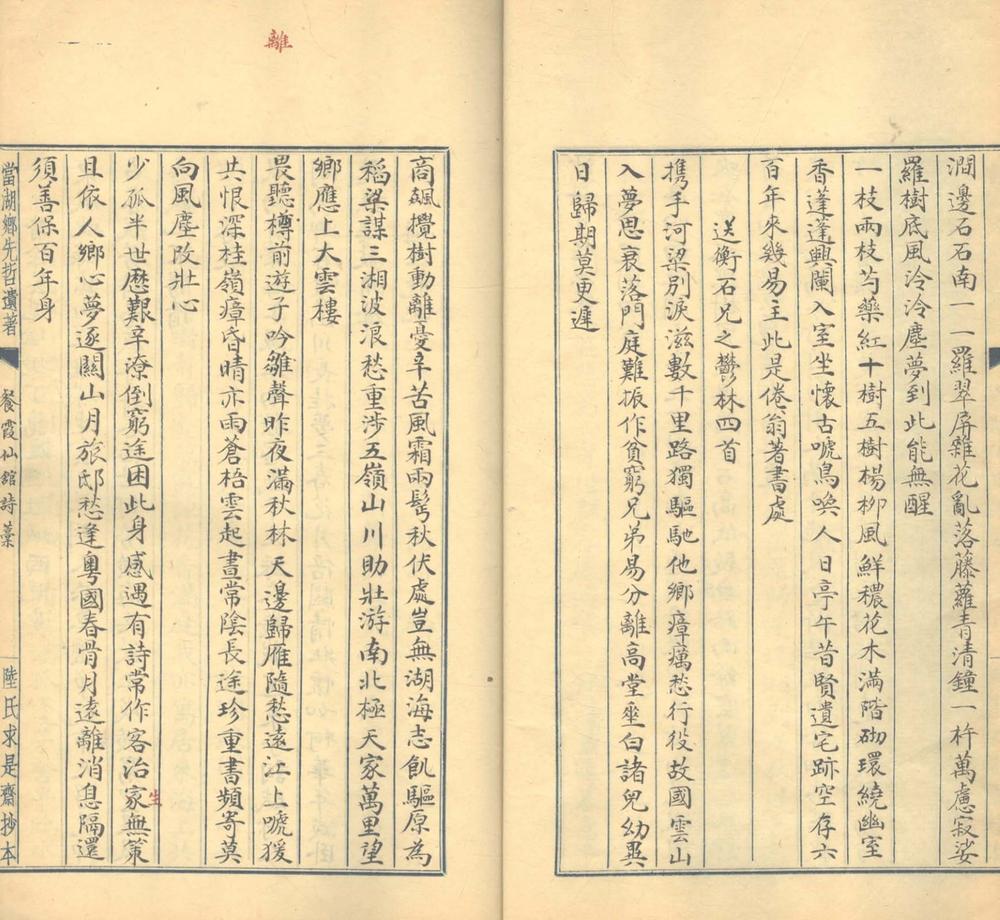 澗邊石石南一一羅翠屏雜花亂落藤蘿青清鐘一杵萬慮寂娑
羅樹底風泠泠塵夢到此能無醒
一枝兩枝芍藥紅十樹五樹楊柳風鮮穠花木滿階砌環繞幽室
香蓬蓬興闌入室坐懷古唬鳥喚人日亭午昔賢遺宅跡空存六
百年來幾易主此是倦翁著書處
送衡石兄之鬱林四首
携手河梁別淚滋數千里路獨驅馳他鄉瘴癘愁行役故國雲山
入夢思衰落門庭難振作貧窮兄弟易分離高堂垂白諸兒幼異
日歸期莫更遲
離
商飆攪樹動離憂辛苦風霜兩鬂秋伏處豈無湖海志飢驅原為
稻粱謀三湘波浪愁重涉五嶺山川助壯游南北極天家萬里望
鄉應上大雲樓
畏聽樽前遊子吟雛聲昨夜滿秋林天邊歸雁隨愁遠江上唬猨
共恨深桂嶺瘴昏晴亦雨蒼梧雲起晝常陰長途珍重書頻寄莫
向風塵改壯心
少孤半世歷艱辛潦倒窮途困此身感遇有詩常作客治家無策
生
且依人鄉心夢逐關山月旅邸愁逢粵國春骨月遠離消息隔還
須善保百年身
當湖鄉先哲遺著
餐霞仙館詩藁
陸氏求是齋抄本